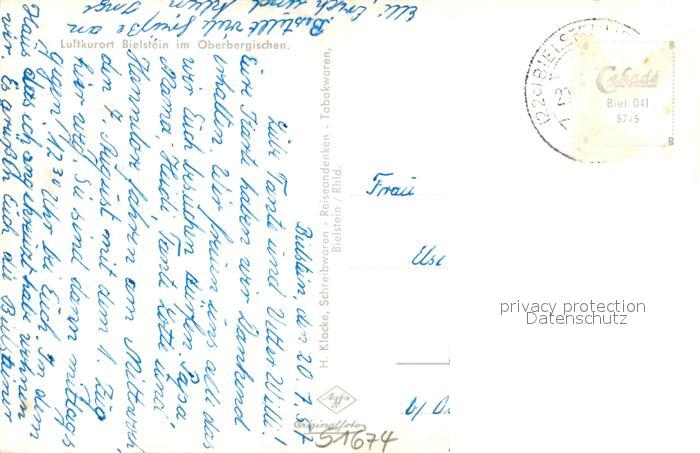 Luftkurort Bielstein im Oberbergischen.
Bielstein, d. 20. 7. 57
Liebe Tante und Vetter Willi!
Eure Karte haben wir dankend
erhalten. Wir freuen uns all das
wir Euch besuchen dürfen. Papa,
Mama, Tante und
Hannelore fahren am Mittwoch,
den 7. August mit dem 1. Zug
hier weg. Sie sind dann mittags
gegen 12.30 Uhr bei Euch. In dem
Haus das ich angekreuzt habe wohnen
wir. Es grüßt Euch alle
Bestellt viele Grüße an
Elli, Erich und klein Inge
H. Klocke, Schreibwaren - Reiseandenken - Tabakwaren,
Bielstein / Rhld.
Agfa
Originalfoto
51674
(22c) BIELSTEIN
Cekade
Biel 041
57/5
8
8
8
8
Frau
privacy protection
Datenschutz